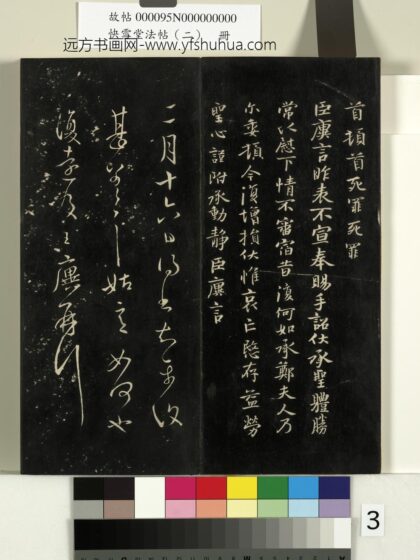 故帖 000095N000000000
快雪堂法帖（二） 冊
远方书画网-www.yfshuhua.com
首頓首死罪死罪
臣廙言昨表不宣奉賜手詔伏承聖體勝
常以慰下情不審宿昔復何如承鄭夫人乃
尓委頓今復增損伏惟哀亡愍存益勞
聖心謹附承動靜臣廙言
二月十六日
姑 如何
王廙
3